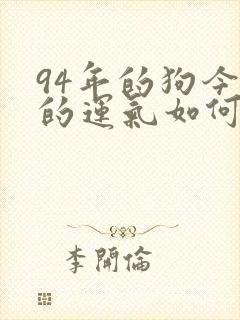 94年的狗今
的運氣如何
李開倫